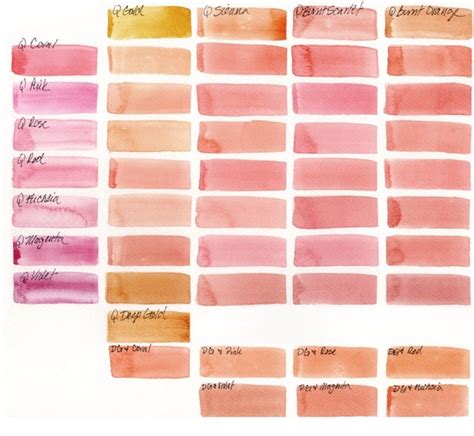 Q Gold Q Sienna Q Burnt Scarlet Q Burnt Orange
Q Coral
Q Pink
Q Rose
Q Red
Q Fuchsia
Q Magenta
Q Violet
Q Deep Gold
DG & Coral DG & Pink DG & Rose DG & Red
DG & Violet DG & Magenta DG & Fuchsia